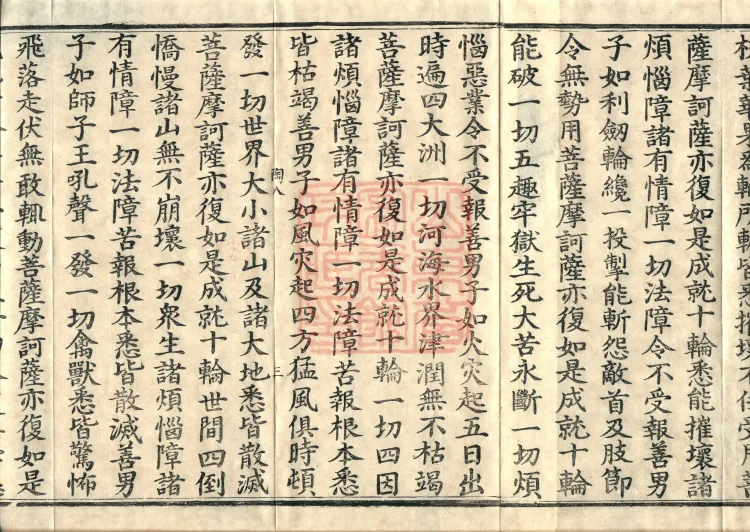 薩摩訶薩亦復如是成就十輪悉能摧壞諸
煩惱障諸有情障一切法障令不受報善男
子如利劒輪纔一投掣能斬怨敵首及肢節
令無勢用菩薩摩訶薩亦復如是成就十輪
能破一切五趣牢獄生死大苦永斷一切煩
惱惡業令不受報善男子如火灾起五日出
時遍四大洲一切河海水界津潤無不枯竭
菩薩摩訶薩亦復如是成就十輪一切四因
諸煩惱障諸有情障一切法障苦報根本悉
皆枯竭善男子如風灾起四方猛風俱時頓
八 三
發一切世界大小諸山及諸大地悉皆散滅
菩薩摩訶薩亦復如是成就十輪世間四倒
憍慢諸山無不崩壞一切衆生諸煩惱障諸
有情障一切法障苦報根本悉皆散滅善男
子如師子王吼聲一發一切禽獸悉皆驚怖
飛落走伏無敢輒動菩薩摩訶薩亦復如是